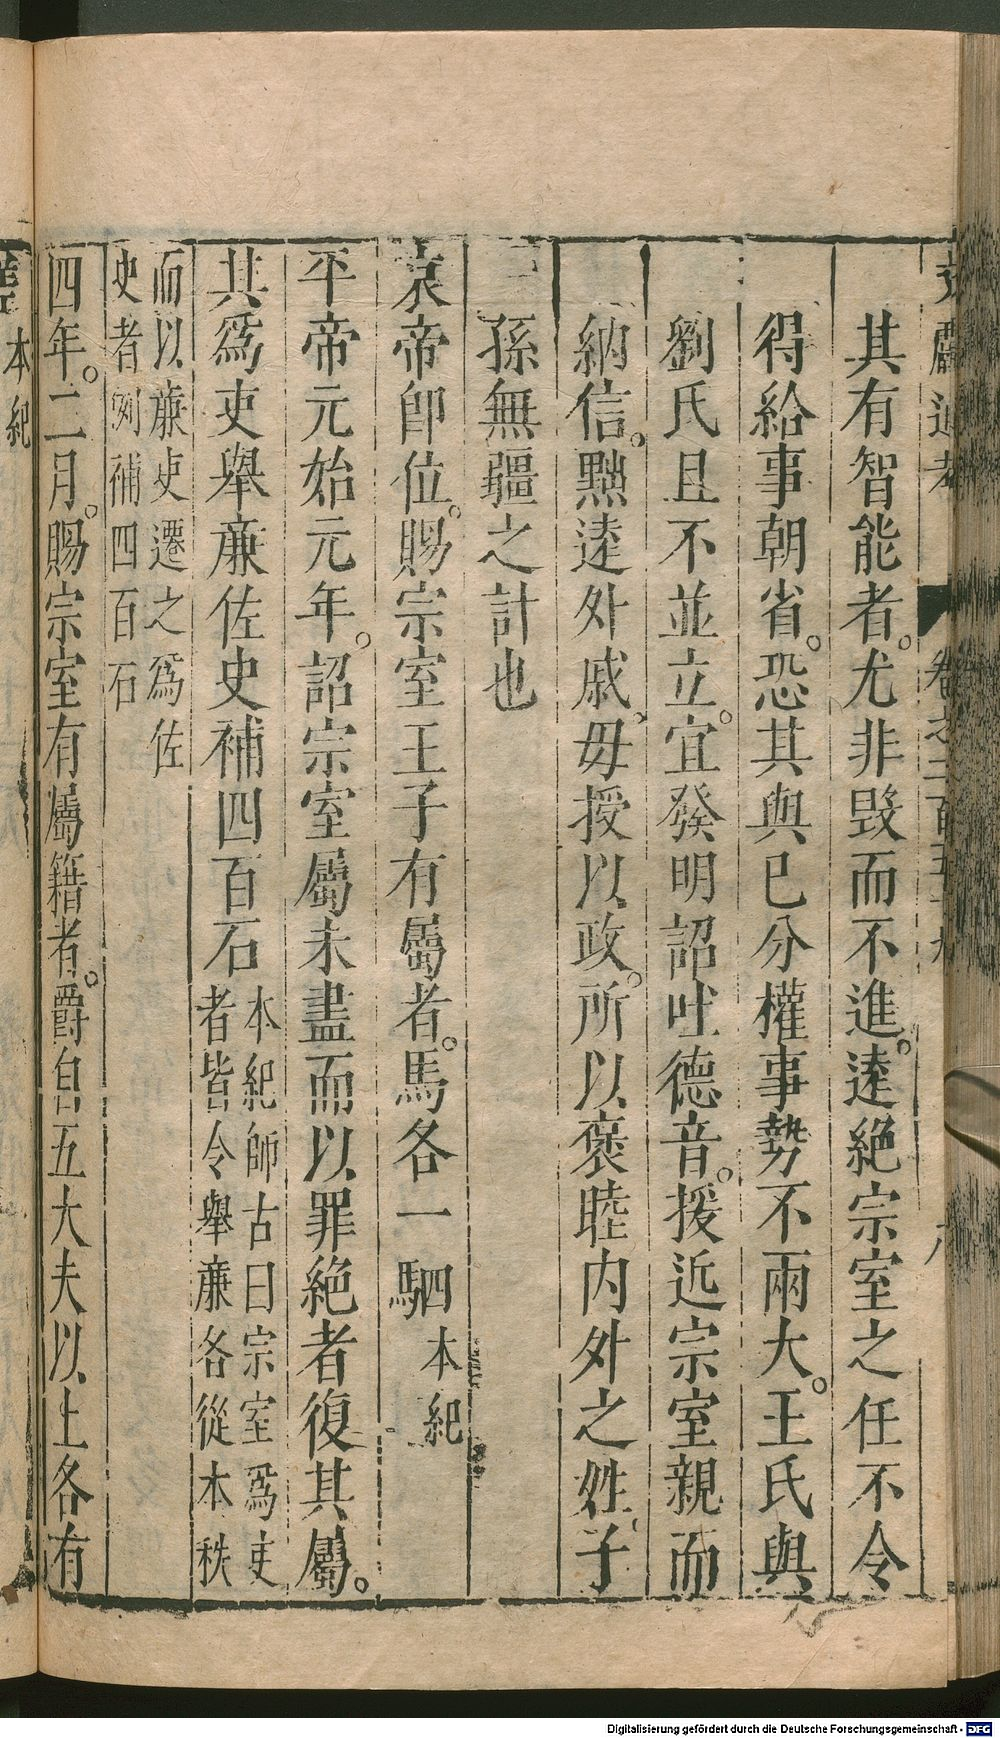 其有智能者。尤非毀而不進。遠絕宗室之任不令
得給事朝省。恐其與己分權事勢不兩大。王氏與
劉氏且不並立。宜發明詔吐德音。援近宗室親而
納信。黜遠外戚。毋授以政。所以褒睦內外之姓子
孫無疆之計也
哀帝即位。賜宗室王子有屬者。馬各一駟本紀
平帝元始元年。詔宗室屬未盡而以罪絕者復其屬。
其爲吏舉廉佐史補四百石本紀師古曰宗室爲吏
者皆令舉廉各從本秩
而以廉吏遷之爲佐
史者例補四百石
四年。二月。賜宗室有屬籍者。爵自五大夫以上各有
本紀
Digitalisierung gefördert durch die Deutsche Forschungsgemeinschaft - DFG